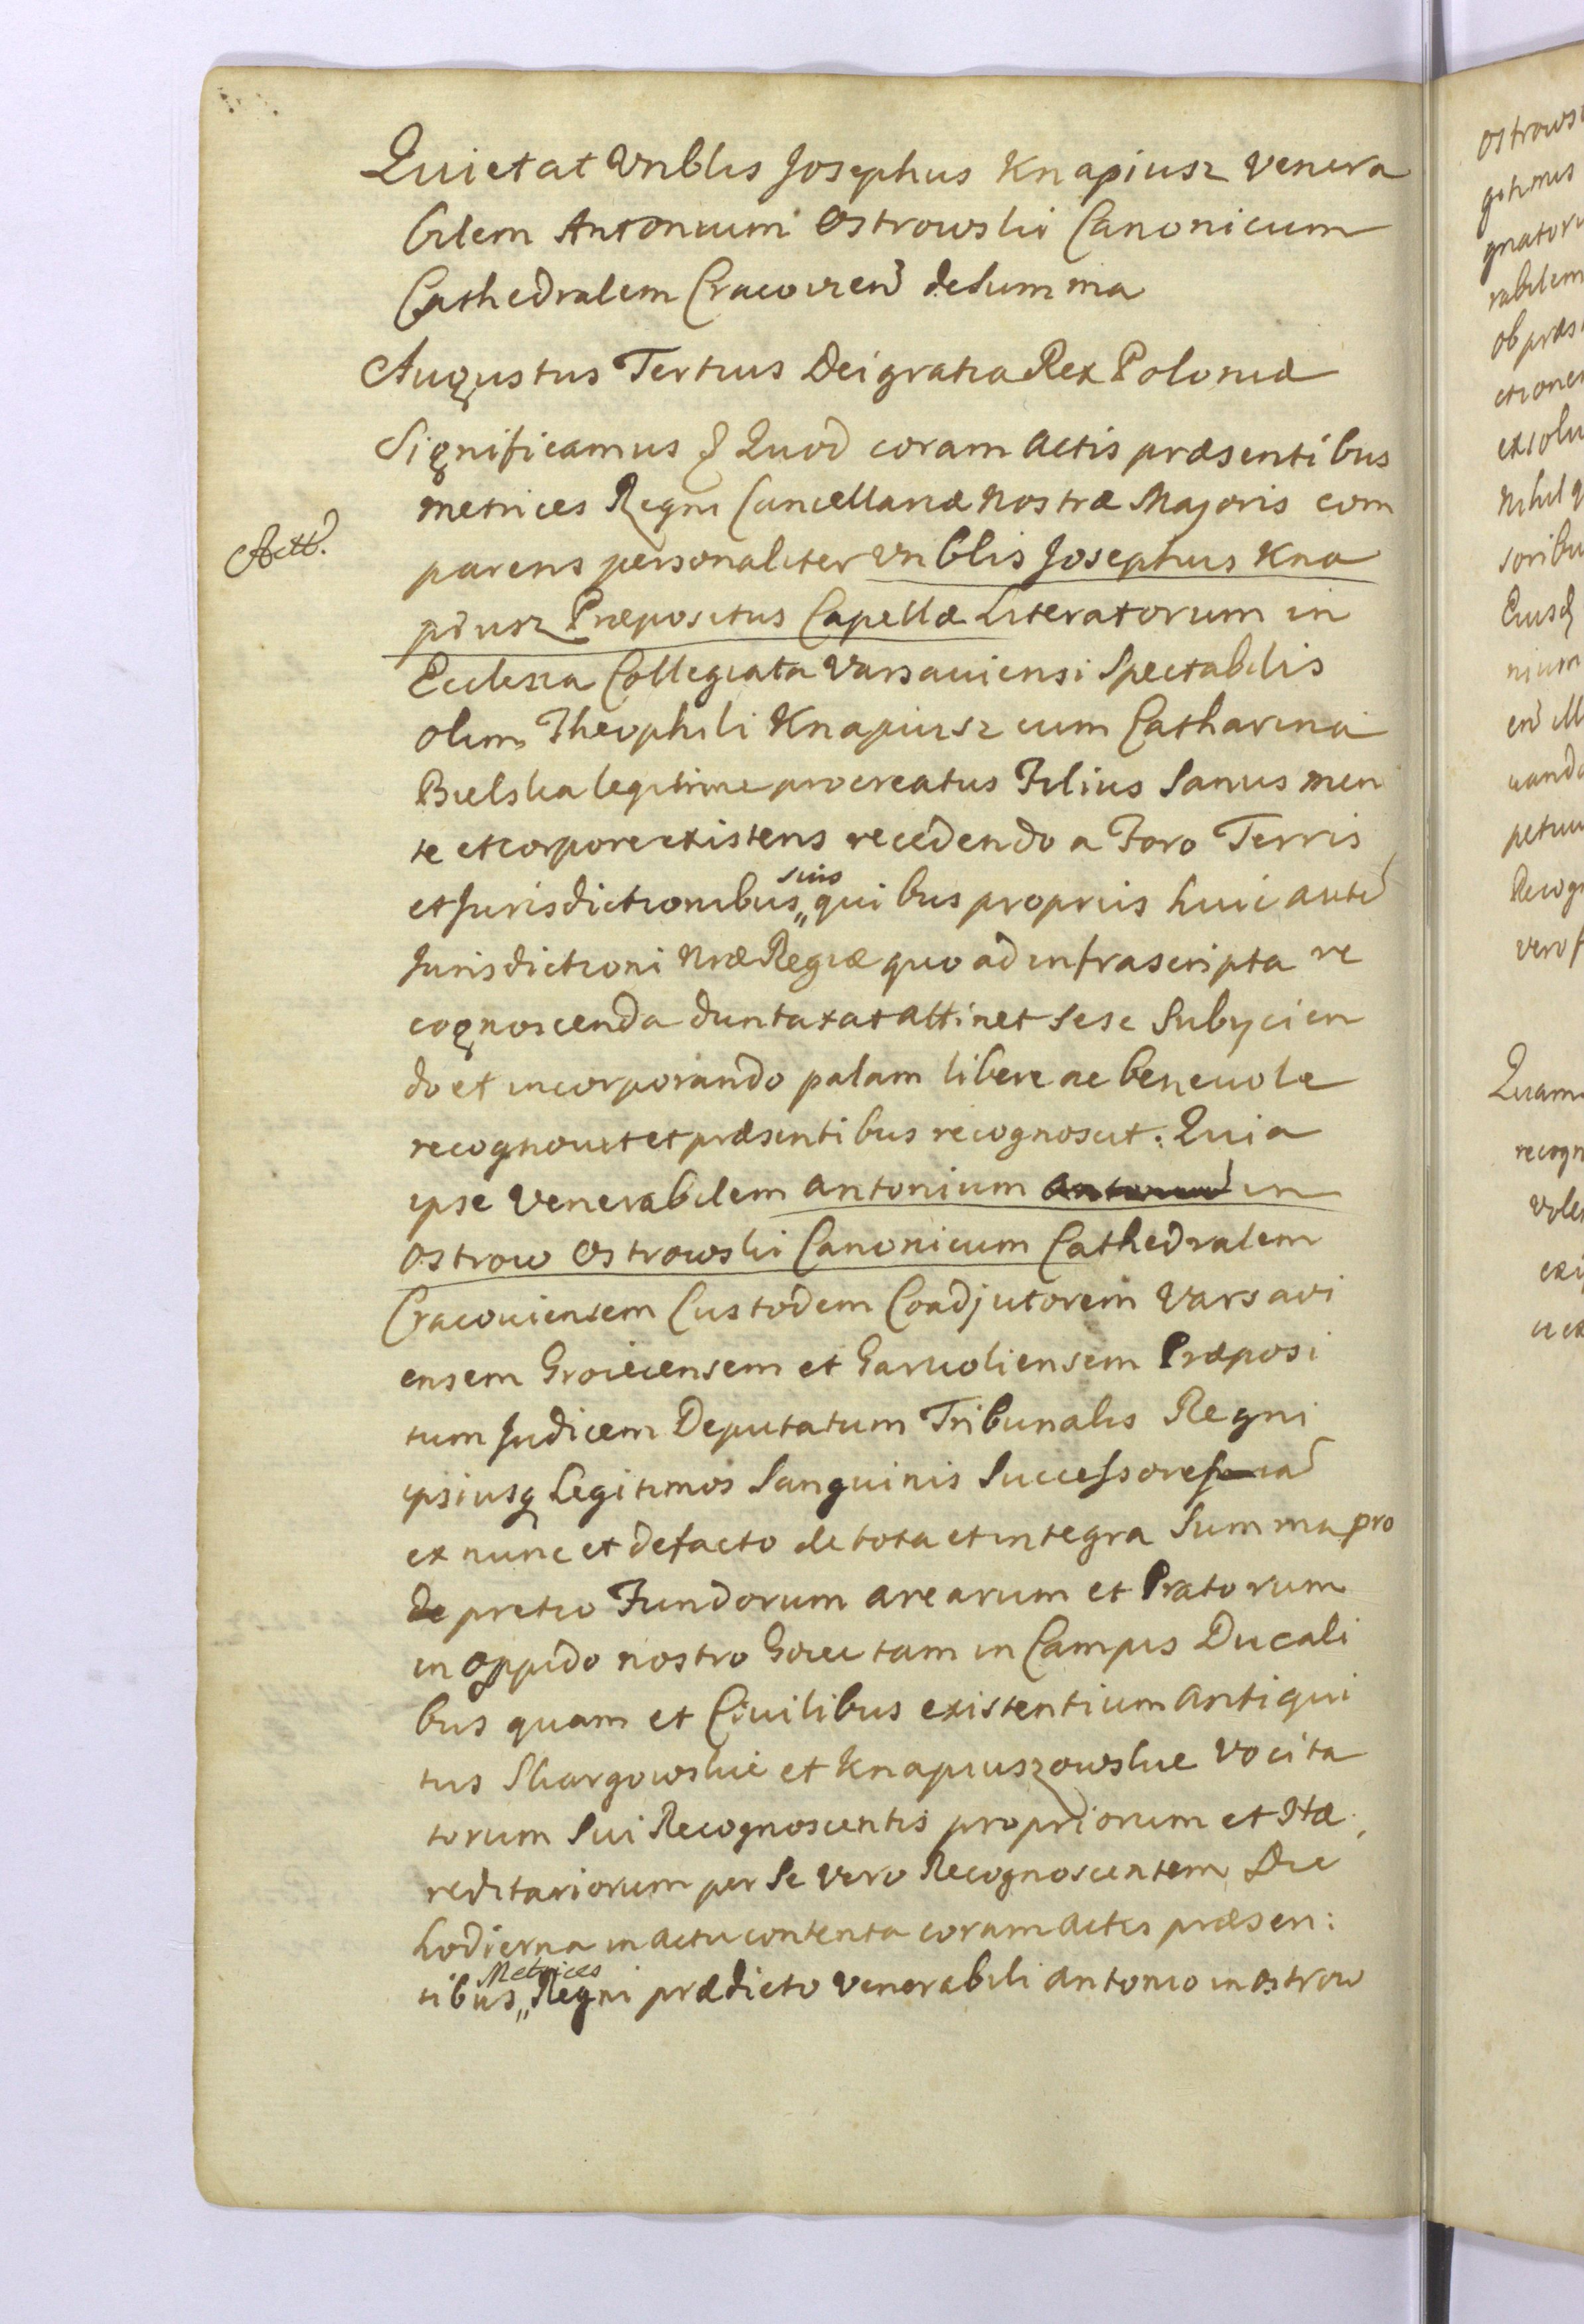 Quietat Vnblis Josephus Knapiusz Venera
bilem Antonium Ostrowski Canonicum
Cathedralem Cracovien de Summa
Augustus Tertius Dei gratia Rex Poloniæ
Significamus & Quod coram Actis præsentibus
Metrices Regni Cancellariæ Nostræ Majoris com
Actt.
parens personaliter Vnblis Josephus Kna
piusz Præpositus Capellæ Literatorum in
Ecclesia Collegiata Varsaviensi Spectabilis
olim Theophili Knapiusz cum Catharina
Bielska legitime procreatus Filius Sanus men
te et corpore existens recedendo a Foro Terris
et Jurisdictionibus suis quibus propriis huic aute
Jurisdictioni Nræ Regiæ quo ad infrascripta re
cognoscenda duntaxat attinet sese Subijcien
do et incorporando palam libere ac benevole
recognovit et præsentibus recognoscit: Quia
ipse Venerabilem Antonium in
Ostrow Ostrowski Canonicum Cathedralem
Cracoviensem Custodem Coadjutorem Varsavi
ensem Groiecensem et Garvoliensem Præposi
tum Judicem Deputatum Tribunalis Regni
ipsiusq Legitimos Sanguinis Successores
ex nunc et de facto de tota et integra Summa pro
de pretio Fundorum Arearum et Pratorum
in oppido nostro tam in Campis Ducali
bus quam et Civilibus existentium antiqui
tus Skargowskie et Knapiuszowskie Vocita
torum Sui Recognoscentis propriorum et Hæ
reditariorum per Se Vero Recognoscentem Die
hodierna in actu contenta coram Actis præsen:
tibus Metrices Regni prædicto Venerabili Antonio in Ostrow
Ostrows
gitimos
gnatoru
rabilem
ob præs
ctionem
exsolu
Nihil q
soribu
Eiusd
nium
petuu
Recogn
vero
Quam
recogn